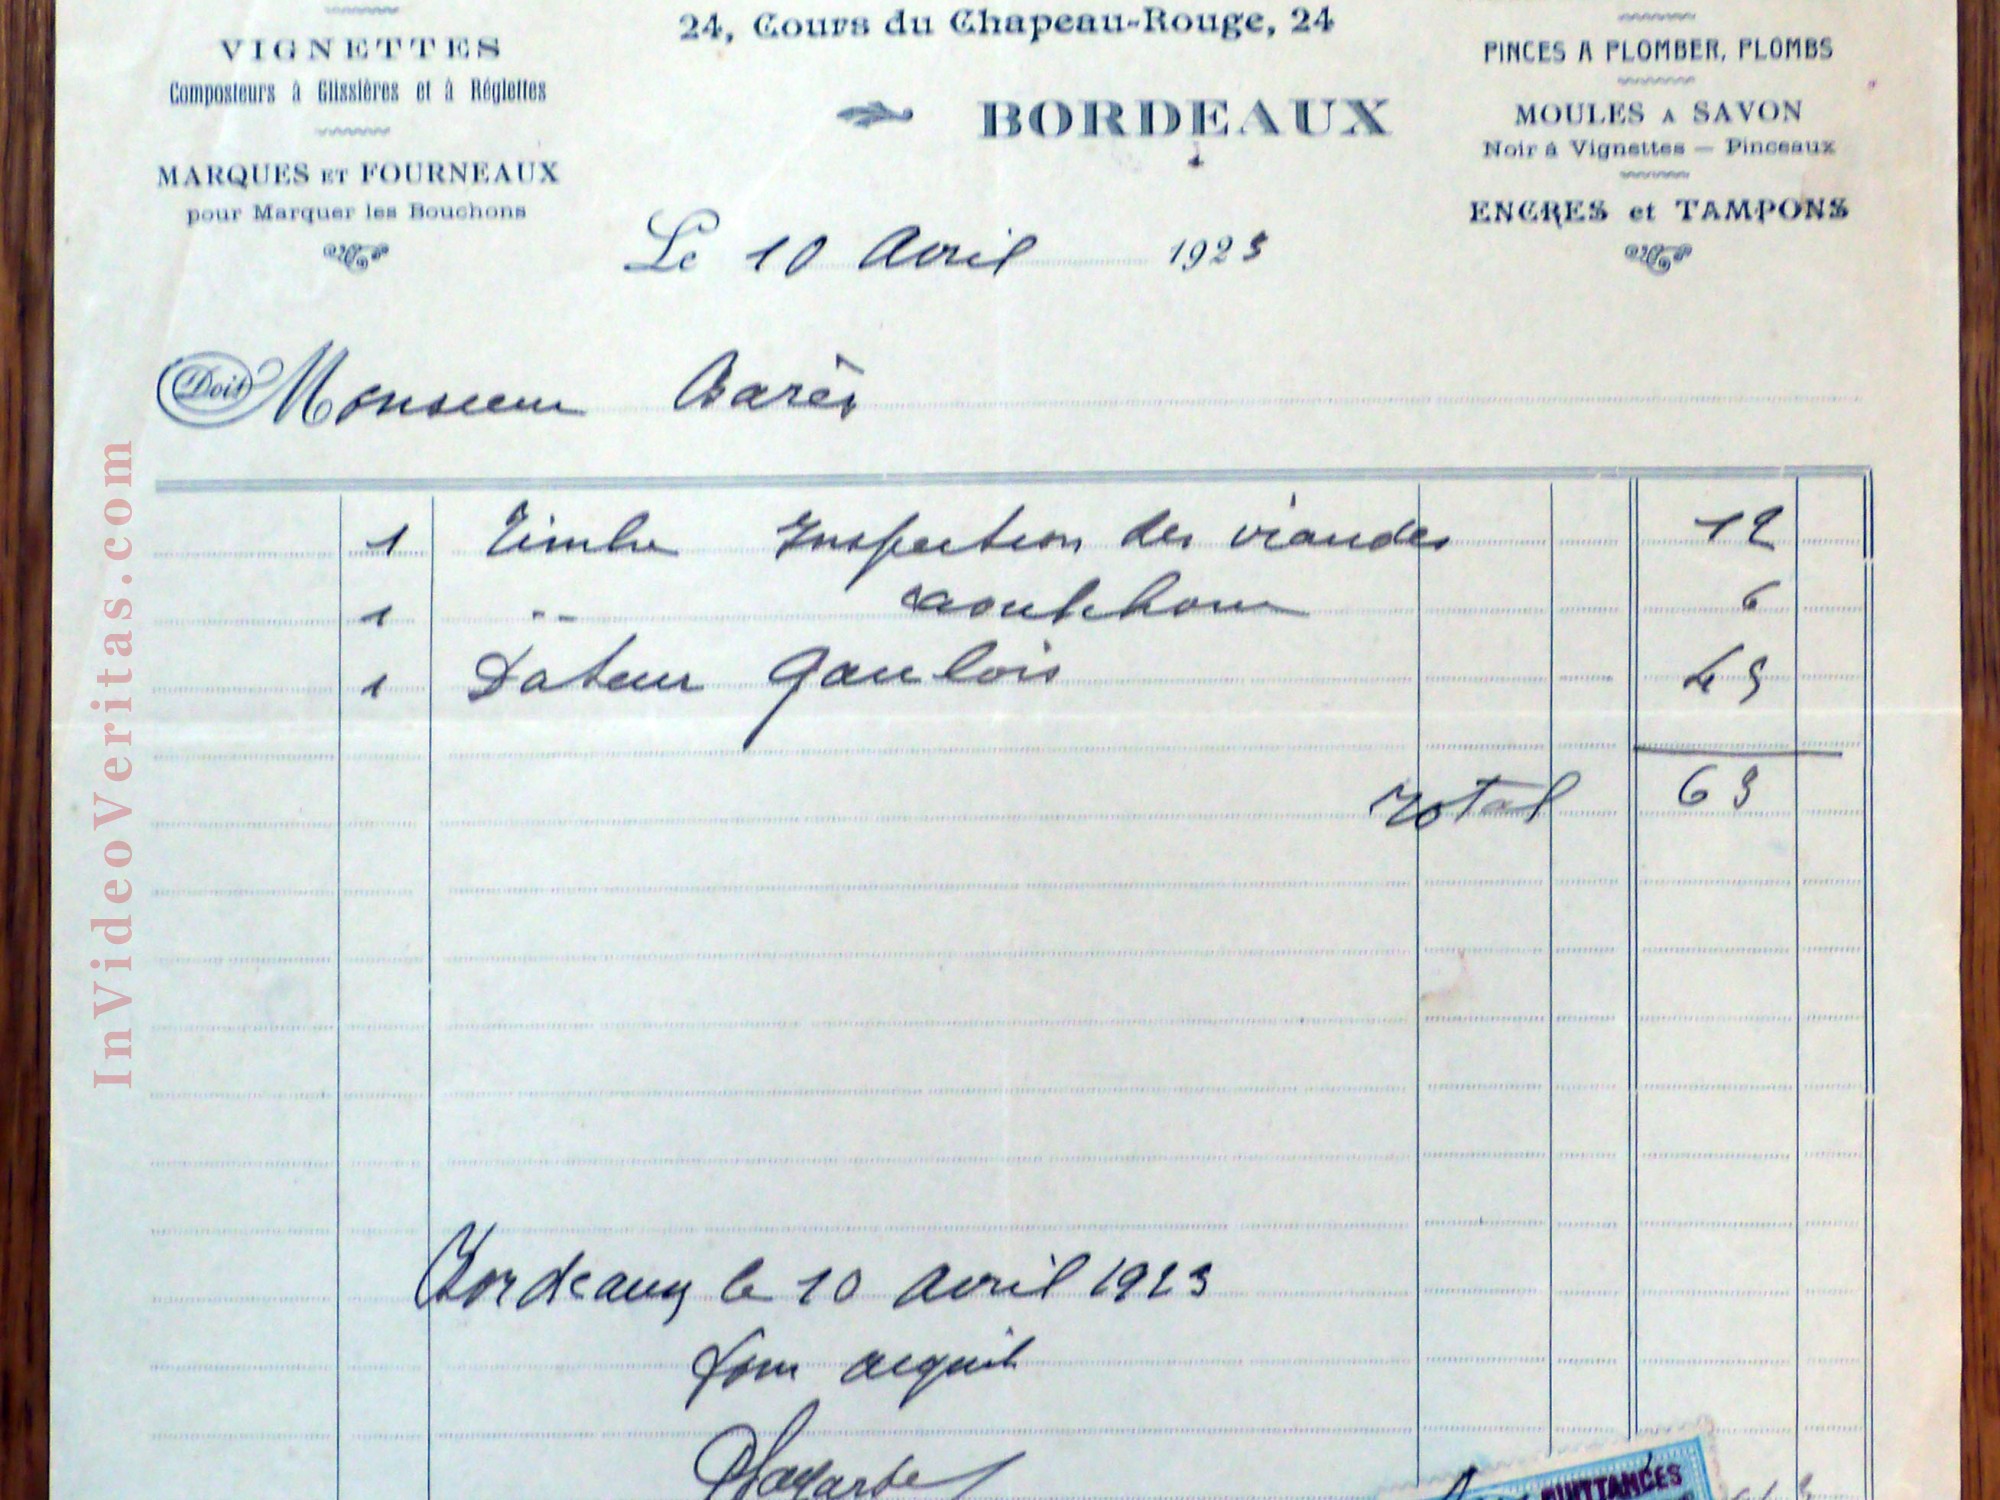 VIGNETTES
Composteurs à Glissières et à Réglettes
MARQUES ET FOURNEAUX
pour Marquer les Bouchons
24, Cours du Chapeau-Rouge, 24
BORDEAUX
PINCES A PLOMBER, PLOMBS
MOULES A SAVON
Noir à Vignettes — Pinceaux
ENCRES et TAMPONS
Le 10 Avril 1923
Doit Monsieur Barès
1 Timbre Inspection des viandes 12
1 -- caoutchouc 6
1 Dateur Gaulois 45
Total 63
Bordeaux le 10 Avril 1923
Pour acquit
Lagarde
QUITTANCES
InVideoVeritas.com